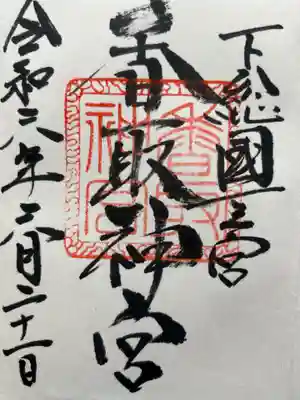 下総國一之宮
香取神宮
令和六年二月二十一日
香取神宮